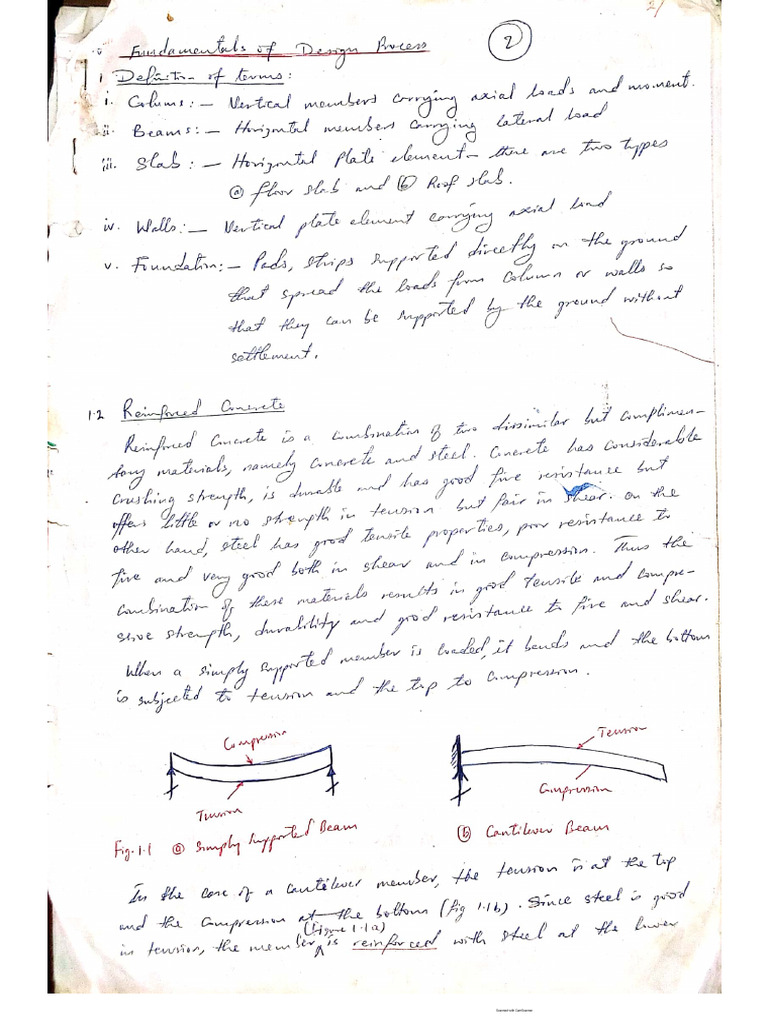 2/
Fundamentals of Design Process
2
1 Definition of terms:
i. Colums:- Vertical members carrying axial loads and moment.
ii. Beams:- Horizontal members carrying lateral load
iii. Slab:- Horizontal plate element - there are two types
(a) floor slab and (b) Roof slab.
iv. Walls:- Vertical plate element carrying axial load
v. Foundation:- Pads, strips supported directly on the ground
that spread the loads from column or walls so
that they can be supported by the ground without
settlement.
1.2 Reinforced Concrete
Reinforced Concrete is a combination of two dissimilar but complimen-
tary materials, namely concrete and steel. Concrete has considerable
crushing strength, is durable and has good fire resistance but
offers little or no strength in tension but fair in shear. On the
other hand, steel has good tensile properties, poor resistance to
fire and very good both in shear and in compression. Thus the
combination of these materials results in good tensile and compre-
ssive strength, durability and good resistance to fire and shear.
When a simply supported member is loaded, it bends and the bottom
is subjected to tension and the top to compression.
Compression
Tension
Tension
Compression
Fig. 1.1 (a) Simply Supported Beam
(b) Cantilever Beam
In the case of a cantilever member, the tension is at the top
and the compression at the bottom (fig 1.1b). Since steel is good
(Figure 1.1a)
in tension, the member is reinforced with steel at the lower
Scanned with CamScanner